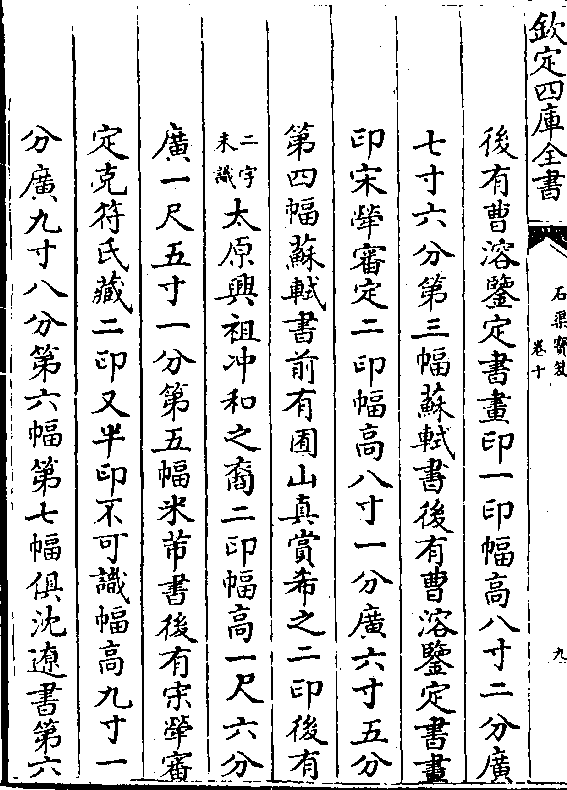 欽定四庫全書
石渠寳笈
卷十
九
後有曹溶鑒定書畫印一印幅高八寸二分廣
七寸六分第三幅蘇軾書後有曹溶鑒定書畫
印宋犖審定二印幅高八寸一分廣六寸五分
第四幅蘇軾書前有圃山真賞希之二印後有
二字
未識
太原興祖冲和之裔二印幅高一尺六分
廣一尺五寸一分第五幅米芾書後有宋犖審
定克符氏藏二印又半印不可識幅高九寸一
分廣九寸八分第六幅第七幅俱沈遼書第六